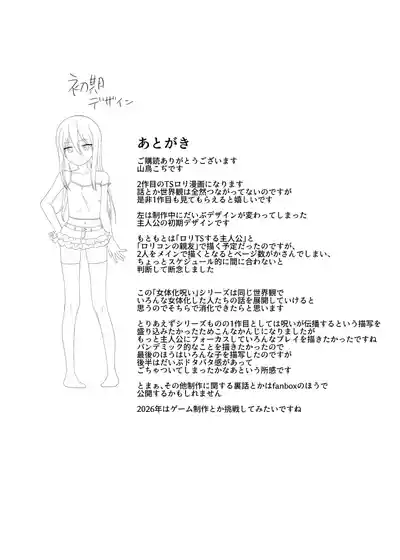 初期
デザイン
あとがき
ご購読ありがとうございます
山鳥こぢです
2作目のTSロリ漫画になります
話とか世界観は全然つながってないのですが
是非1作目も見てもらえると嬉しいです
左は制作中にだいぶデザインが変わってしまった
主人公の初期デザインです
もともとは「ロリTSする主人公」と
「ロリコンの親友」で描く予定だったのですが、
2人をメインで描くとなるとページ数がかさんでしまい、
ちょっとスケジュール的に間に合わないと
判断して断念しました
この「女体化呪い」シリーズは同じ世界観で
いろんな女体化した人たちの話を展開していけると
思うのでそちらで消化できたらと思います
とりあえずシリーズものの1作目としては呪いが伝播するという描写を
盛り込みたかったためこんなかんじになりましたが
もっと主人公にフォーカスしていろんなプレイを描きたかったですね
パンデミック的なことを描きたかったので
最後のほうはいろんな子を描写したのですが
後半はだいぶドタバタ感があって
ごちゃついてしまったかなあという所感です
とまぁ、その他制作に関する裏話とかはfanboxのほうで
公開するかもしれません
2026年はゲーム制作とか挑戦してみたいですね